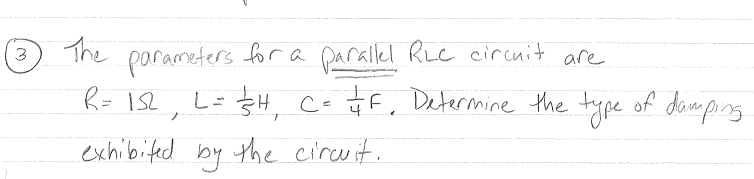 ③ The parameters for a parallel RLC circuit are
R = 1Ω, L = 1/5 H, C = 1/4 F. Determine the type of damping
exhibited by the circuit.